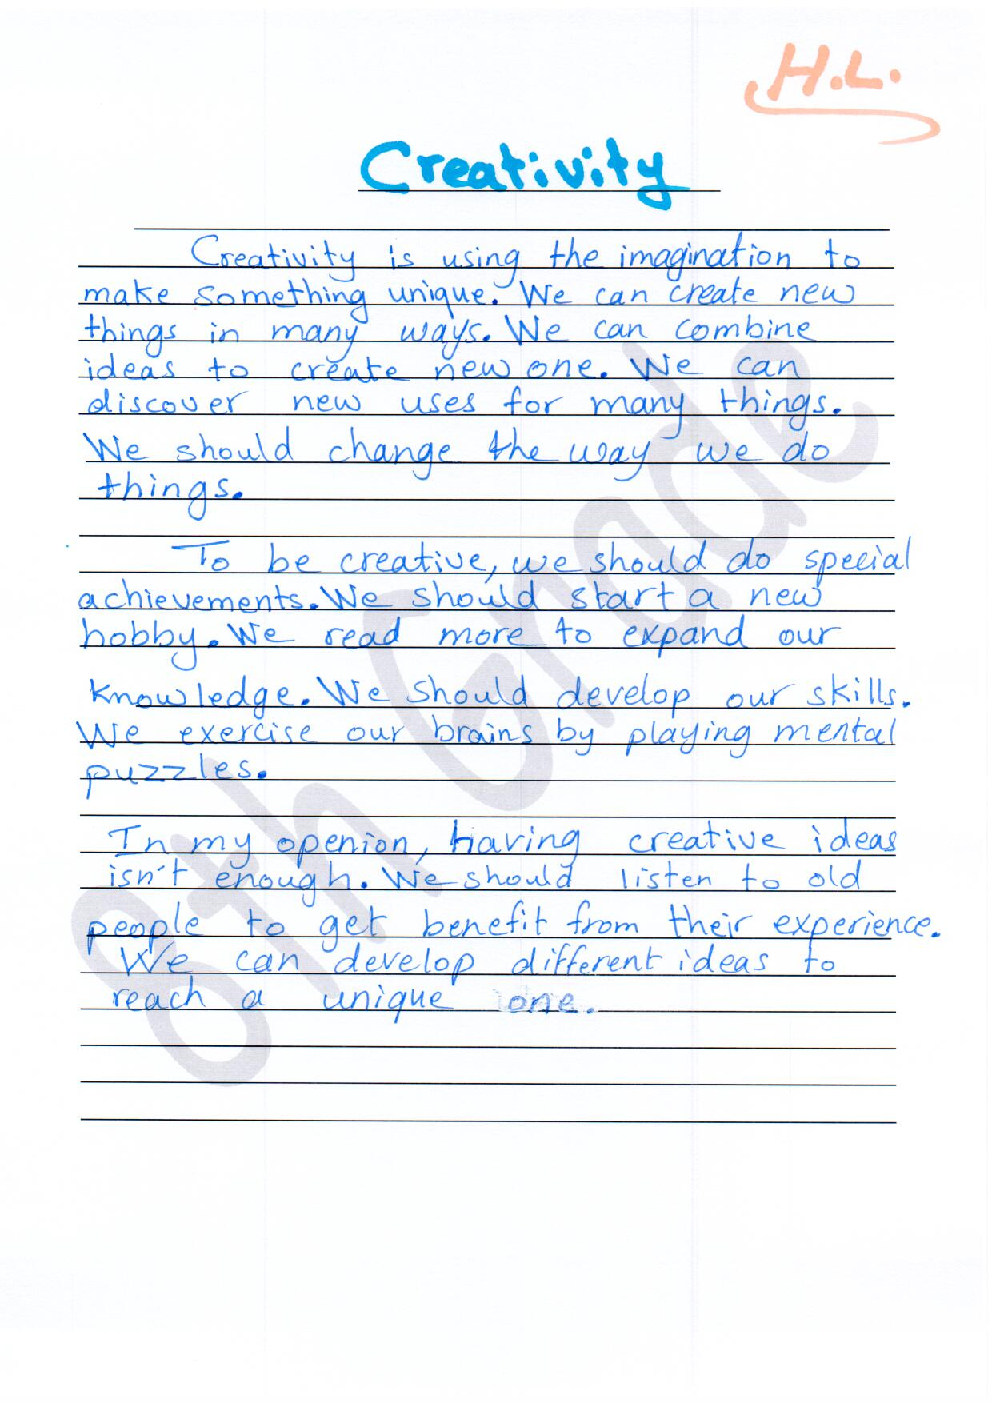 H.L.
Creativity
Creativity is using the imagination to
make something unique. We can create new
things in many ways. We can combine
ideas to create new one. We can
discover new uses for many things.
We should change the way we do
things.
To be creative, we should do special
achievements. We should start a new
hobby. We read more to expand our
knowledge. We should develop our skills.
We exercise our brains by playing mental
puzzles.
In my openion, having creative ideas
isn't enough. We should listen to old
people to get benefit from their experience.
We can develop different ideas to
reach a unique one.
8th Grade